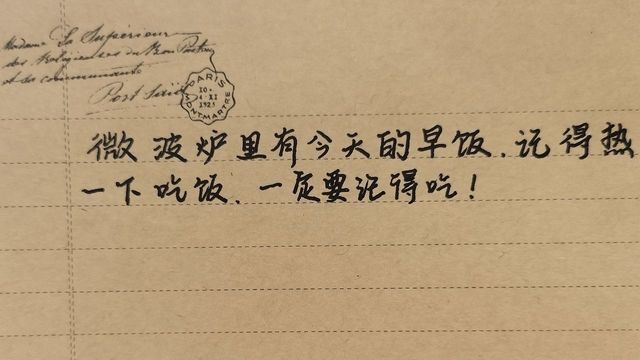 Madame La Supérieur
des Religieuses du Bon Pasteur
et des communauté
Port Saïd
PARIS
10.
4-XI
1925
MONTMARTRE
微波炉里有今天的早饭.记得热
一下吃饭.一定要记得吃!